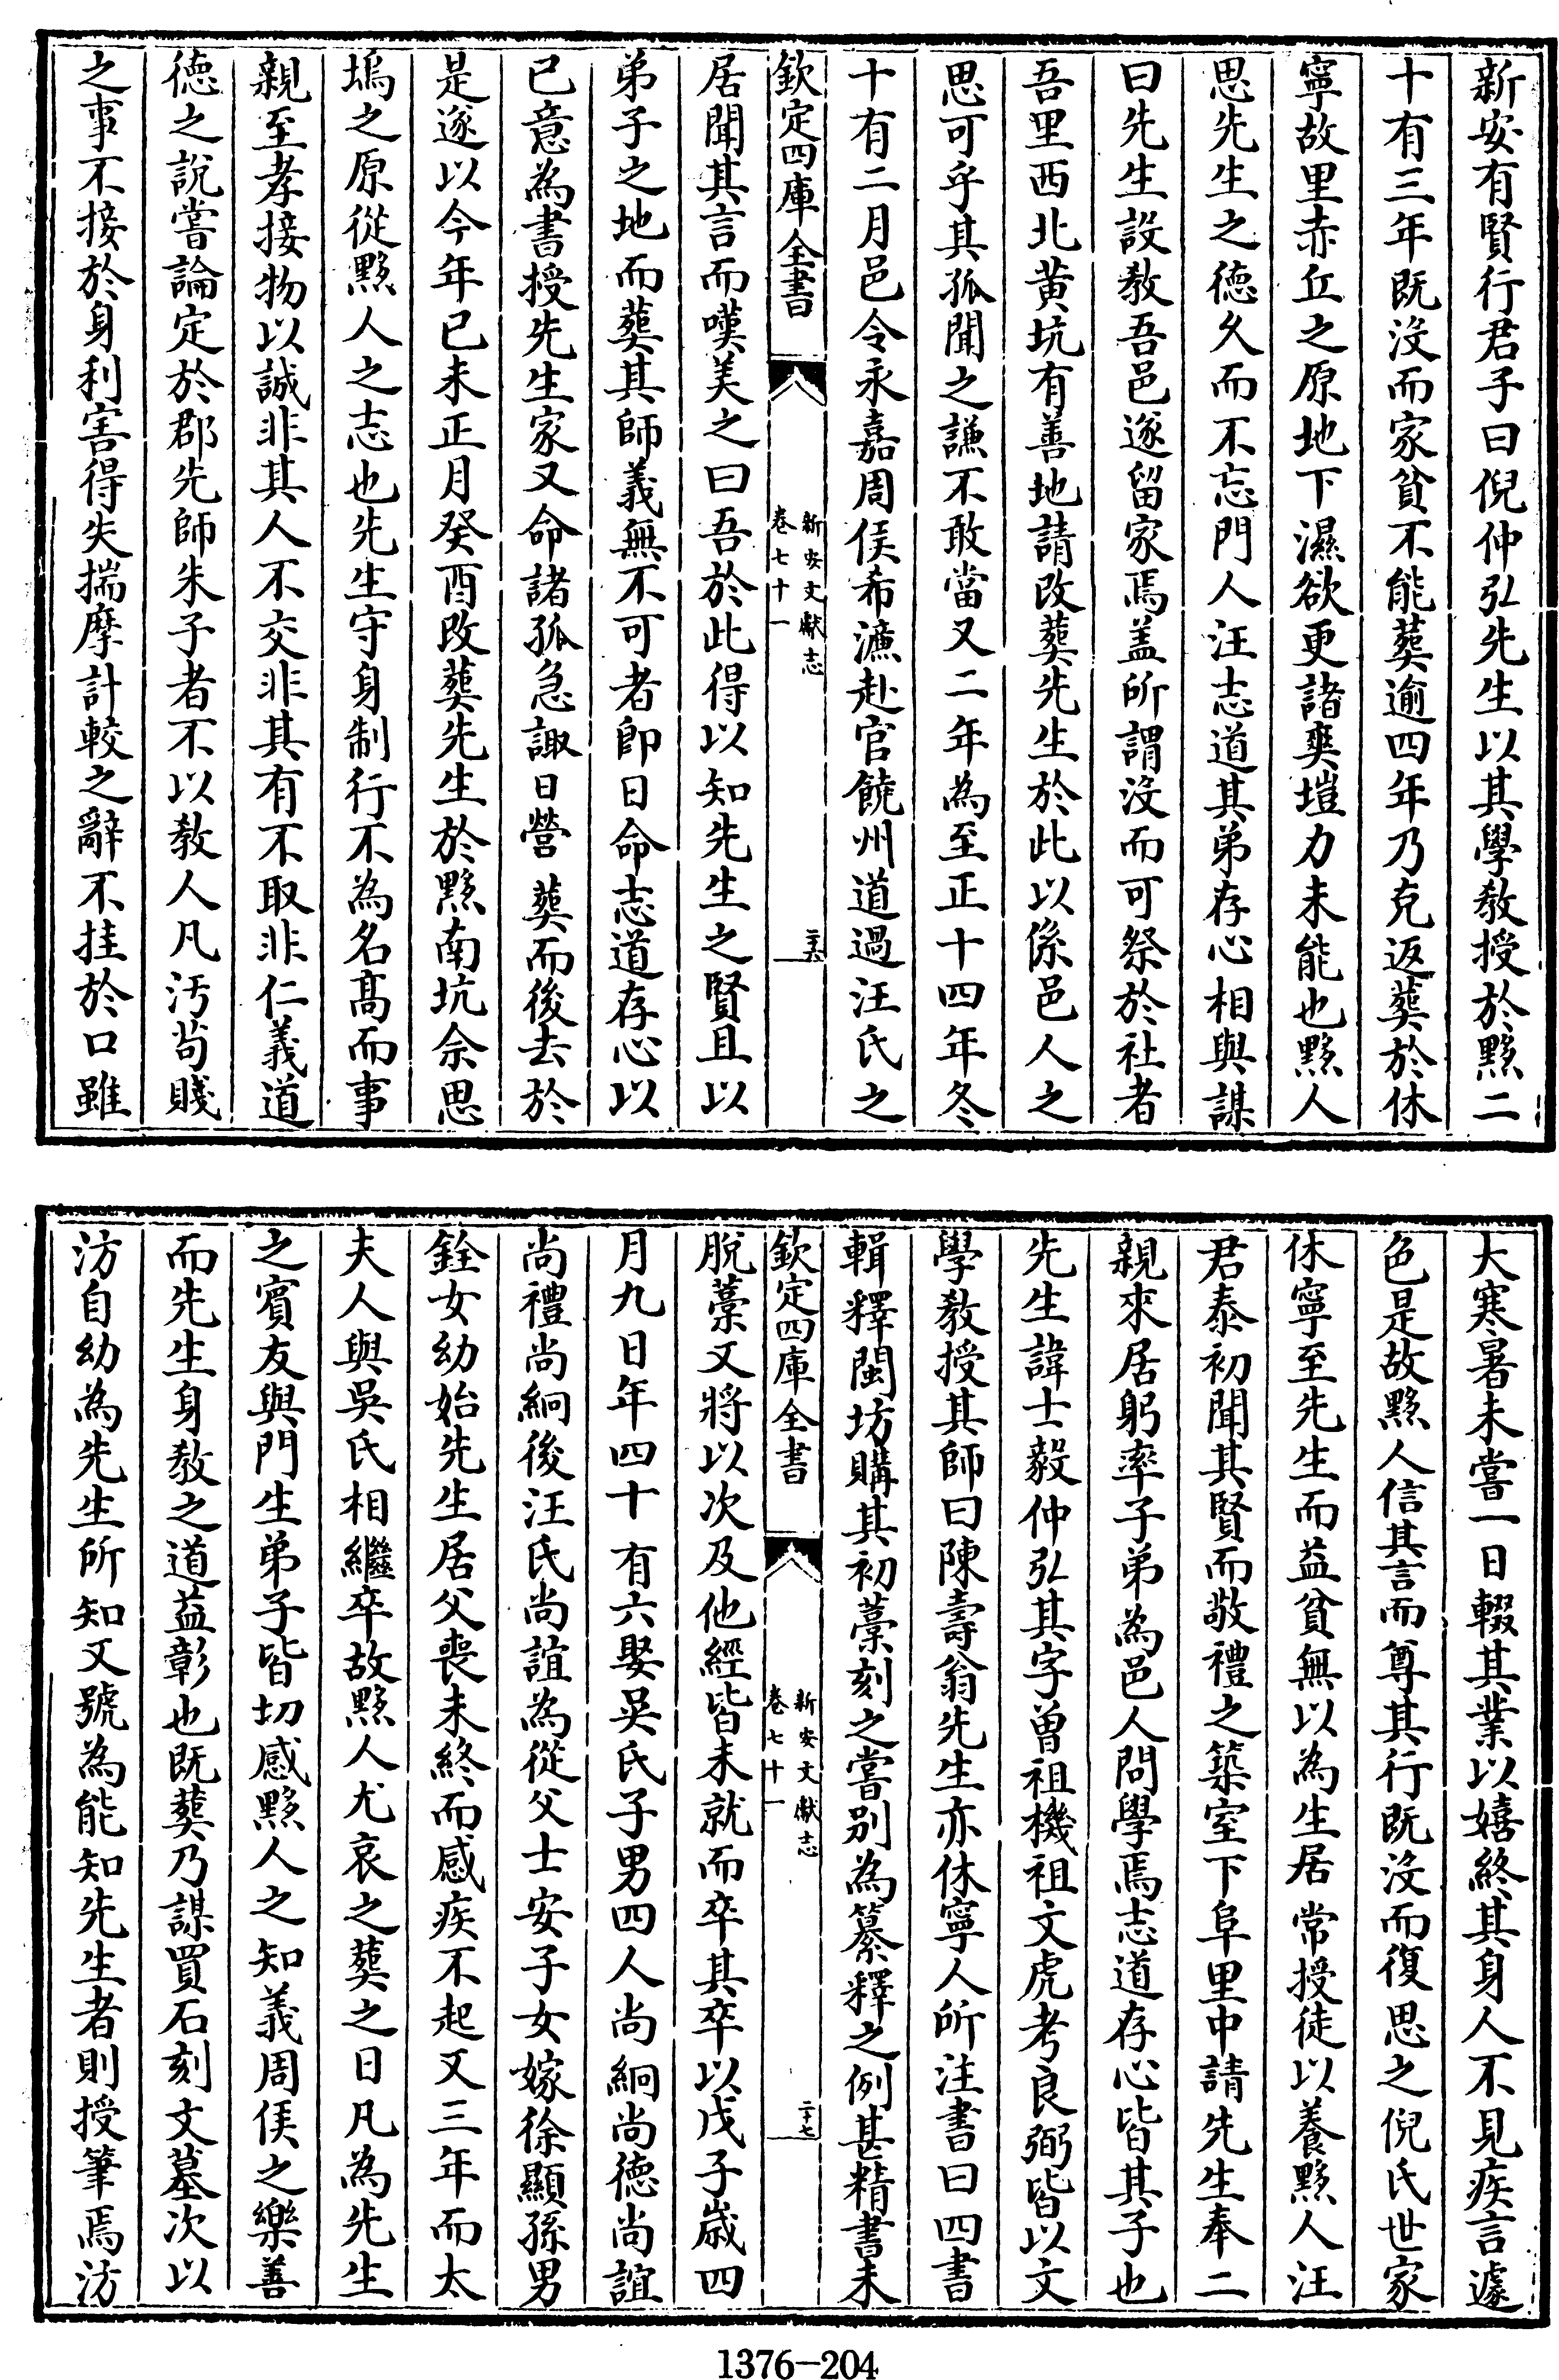 新安有賢行君子曰倪仲弘先生以其學教授於黟二
十有三年既沒而家貧不能葬逾四年乃克返葬於休
寧故里赤丘之原地下濕欲更諸爽塏力未能也黟人
思先生之德久而不忘門人汪志道其弟存心相與謀
曰先生設教吾邑遂留家焉盖所謂沒而可祭於社者
吾里西北黄坑有善地請改葬先生於此以係邑人之
思可乎其孤聞之謙不敢當又二年為至正十四年冬
十有二月邑令永嘉周侯希濂赴官饒州道過汪氏之
欽定四庫全書
新安文獻志
卷七十一
二十六
居聞其言而嘆美之曰吾於此得以知先生之賢且以
弟子之地而葬其師義無不可者即日命志道存心以
已意為書授先生家又命諸孤急諏日營葬而後去於
是遂以今年已未正月癸酉改葬先生於黟南坑佘思
塢之原從黟人之志也先生守身制行不為名髙而事
親至孝接物以誠非其人不交非其有不取非仁義道
德之說嘗論定於郡先師朱子者不以教人凡汚茍賤
之事不接於身利害得失揣摩計較之辭不挂於口雖
大寒暑未嘗一日輟其業以嬉終其身人不見疾言遽
色是故黟人信其言而尊其行既沒而復思之倪氏世家
休寧至先生而益貧無以為生居常授徒以養黟人汪
君泰初聞其賢而敬禮之築室下阜里中請先生奉二
親來居躬率子弟為邑人問學焉志道存心皆其子也
先生諱士毅仲弘其字曽祖機祖文虎考良弼皆以文
學教授其師曰陳壽翁先生亦休寧人所注書曰四書
輯釋閩坊購其初藁刻之嘗別為纂釋之例甚精書未
欽定四庫全書
新安文獻志
卷七十一
二十七
脫藁又將以次及他經皆未就而卒其卒以戊子嵗四
月九日年四十有六娶吳氏子男四人尚絅尚德尚誼
尚禮尚絅後汪氏尚誼為從父士安子女嫁徐顯孫男
銓女幼始先生居父喪未終而感疾不起又三年而太
夫人與吳氏相繼卒故黟人尤哀之葬之日凡為先生
之賓友與門生弟子皆切感黟人之知義周侯之樂善
而先生身教之道益彰也既葬乃謀買石刻文墓次以
汸自幼為先生所知又號為能知先生者則授筆焉汸
1376-204